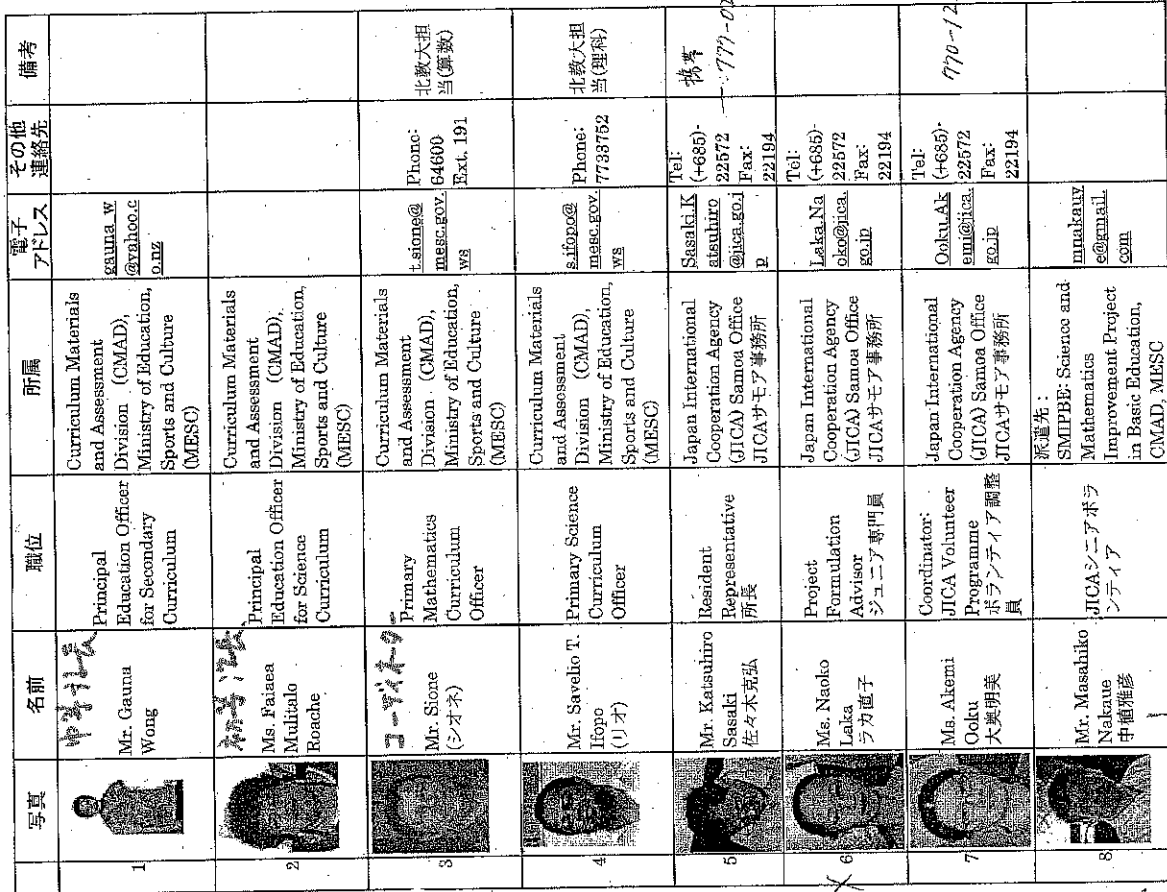 写真
名前
職位
所属
電子
アドレス
その他
連絡先
備考
1
中等
Mr. Gauna
Wong
Principal
Education Officer
for Secondary
Curriculum
Curriculum Materials
and Assessment
Division (CMAD),
Ministry of Education,
Sports and Culture
(MESC)
gauna_w
@yahoo.c
o.nz
2
初等
Ms. Faiaea
Mulitalo
Roache
Principal
Education Officer
for Science
Curriculum
Curriculum Materials
and Assessment
Division (CMAD),
Ministry of Education,
Sports and Culture
(MESC)
3
コーディネーター
Mr. Sione
(シオネ)
Primary
Mathematics
Curriculum
Officer
Curriculum Materials
and Assessment
Division (CMAD),
Ministry of Education,
Sports and Culture
(MESC)
t.sione@
mesc.gov.
ws
Phone:
64600
Ext. 191
北教大担
当(算数)
4
Mr. Savelio T.
Ifopo
(リオ)
Primary Science
Curriculum
Officer
Curriculum Materials
and Assessment
Division (CMAD),
Ministry of Education,
Sports and Culture
(MESC)
s.ifopo@
mesc.gov.
ws
Phone:
7733752
北教大担
当(理科)
5
Mr. Katsuhiro
Sasaki
佐々木克弘
Resident
Representative
所長
Japan International
Cooperation Agency
(JICA) Samoa Office
JICAサモア事務所
Sasaki.K
atsuhiro
@jica.go.j
p
Tel:
(+685)-
22572
Fax:
22194
携帯
777-02
X 6
Ms. Naoko
Laka
ラカ直子
Project
Formulation
Advisor
ジュニア専門員
Japan International
Cooperation Agency
(JICA) Samoa Office
JICAサモア事務所
Laka.Na
oko@jica.
go.jp
Tel:
(+685)-
22572
Fax:
22194
7
Ms. Akemi
Ooku
大奥明美
Coordinator:
JICA Volunteer
Programme
ボランティア調整
員
Japan International
Cooperation Agency
(JICA) Samoa Office
JICAサモア事務所
Ooku.Ak
emi@jica.
go.jp
Tel:
(+685)-
22572
Fax:
22194
770-12
8
Mr. Masahiko
Nakaue
中植雅彦
JICAシニアボラ
ンティア
派遣先：
SMIPBE: Science and
Mathematics
Improvement Project
in Basic Education,
CMAD, MESC
mnakauy
e@gmail.
com